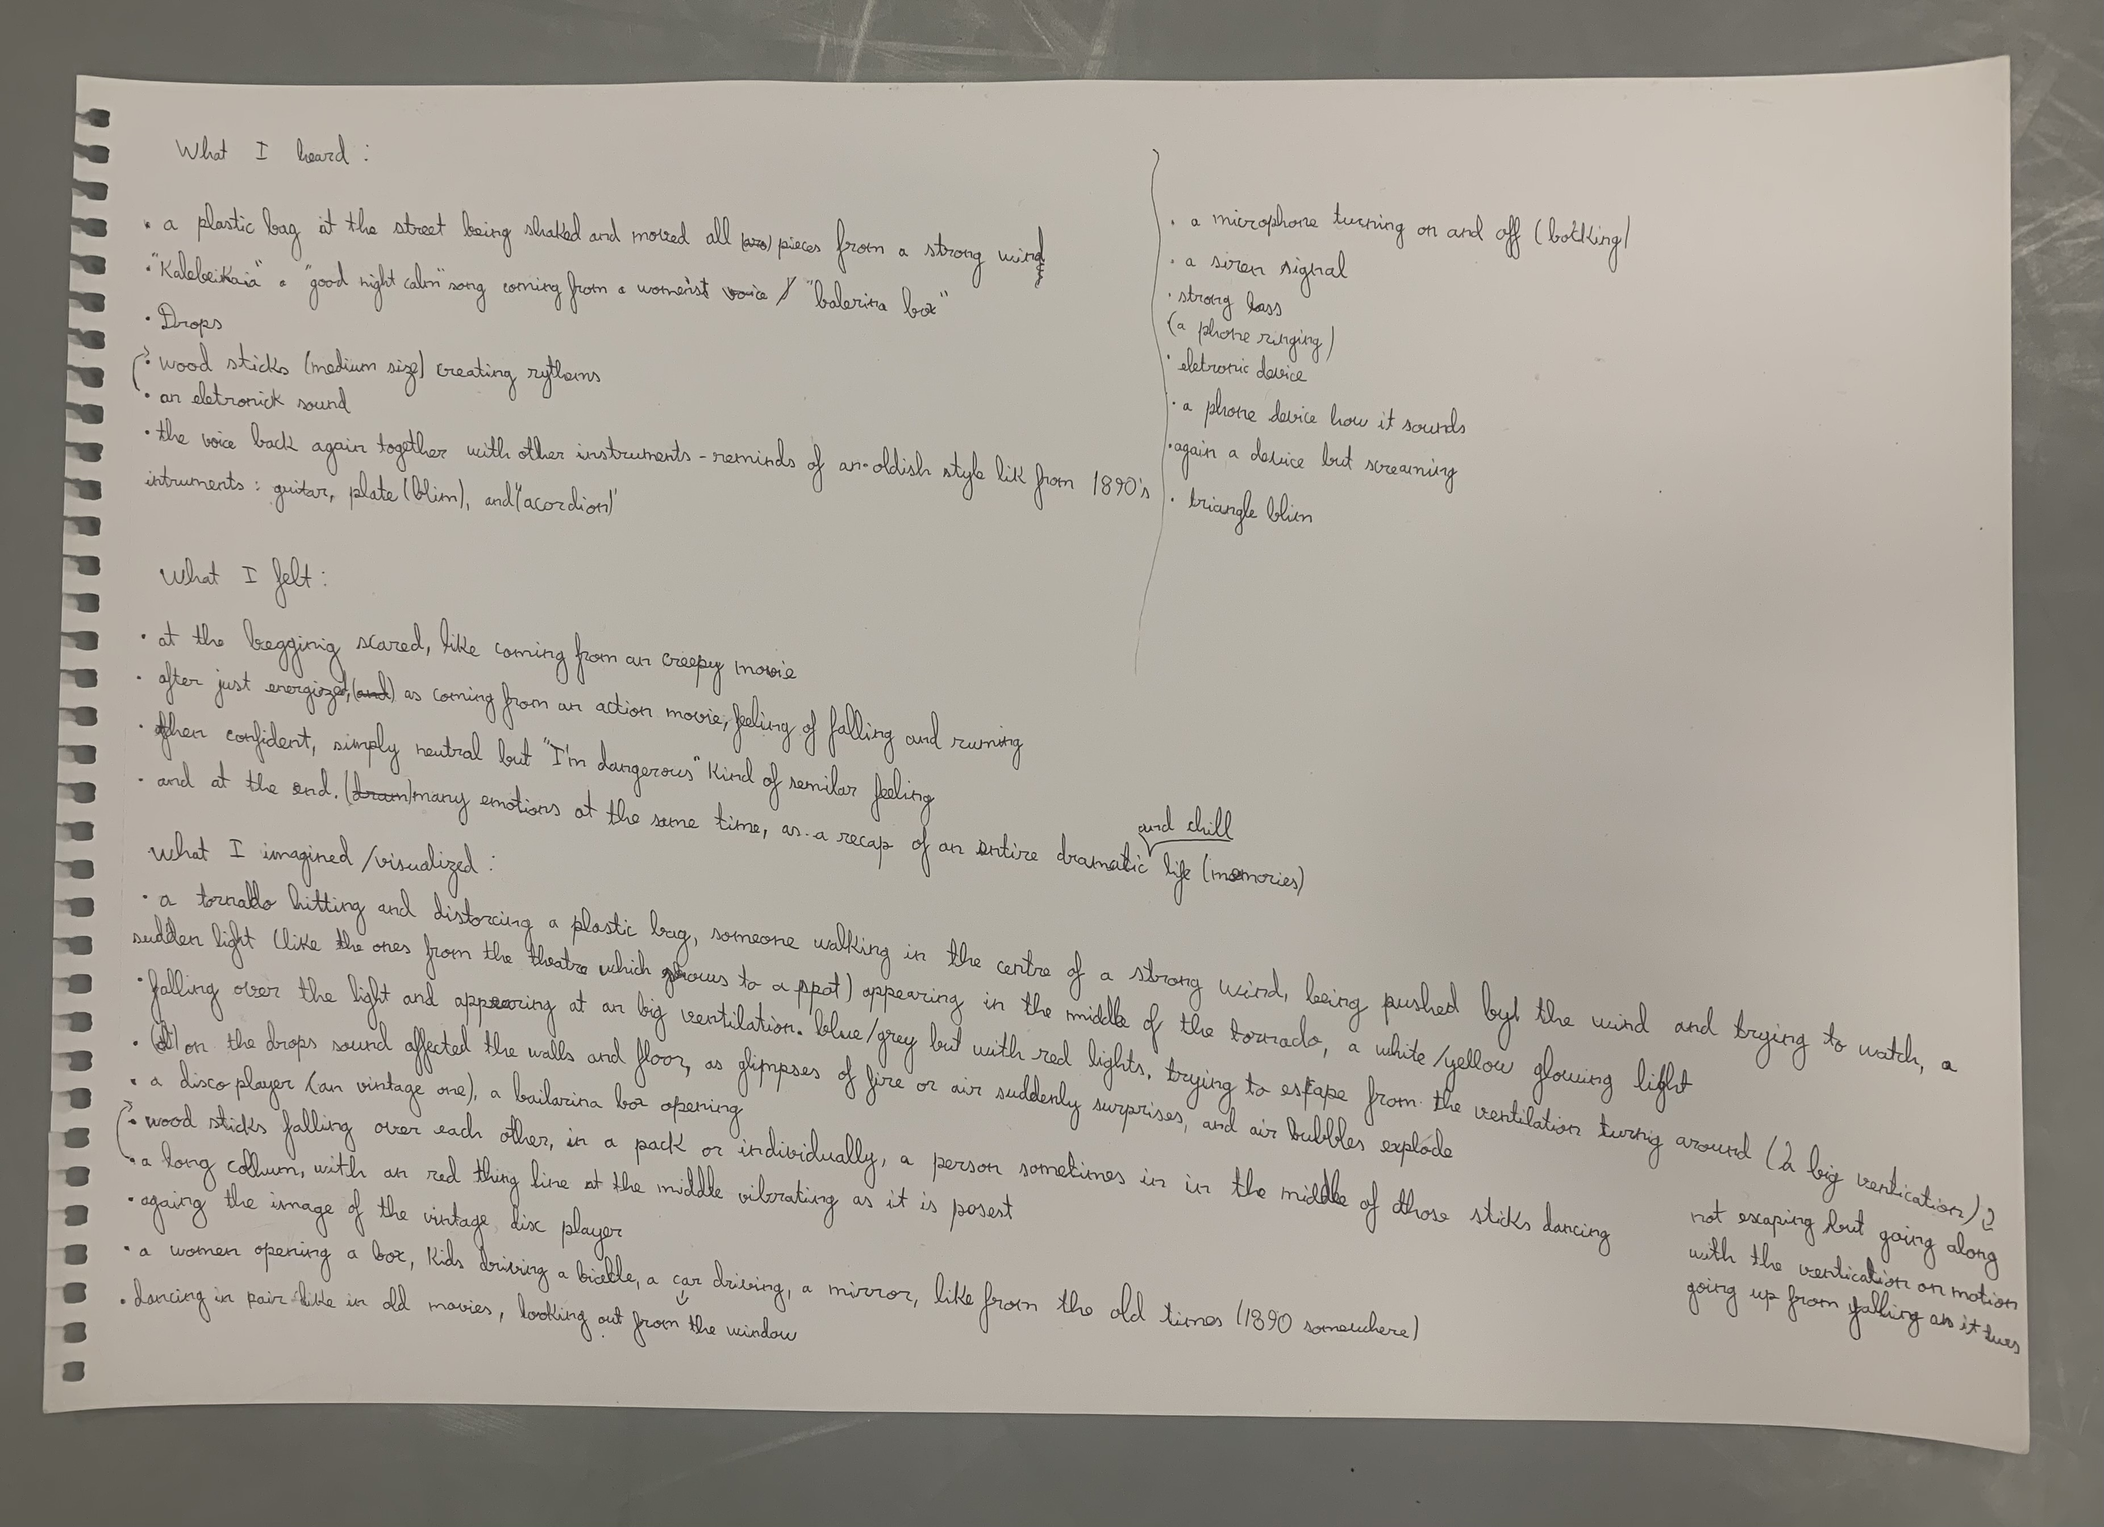 What I heard :
• a plastic bag at the street being shaked and moved all pieces from a strong wind
• "Kalebeikaia" a "good night calm" song coming from a women'st voice / "balerina box"
• Drops
• wood sticks (medium size) creating rythems
• an eletronick sound
• the voice back again together with other instruments - reminds of an oldish style lik from 1890's
intruments : guitar, plate (blim), and "(acordion)"
• a microphone turning on and off (botking)
• a siren signal
• strong bass
(a phone ringing)
• eletronic device
• a phone device how it sounds
• again a device but screaming
• triangle blim
What I felt :
• at the beggining scared, like coming from an creepy movie
• after just energized, (and) as coming from an action movie, feeling of falling and running
• then confident, simply neutral but "I'm dangerous" kind of semilar feeling
• and at the end. (dram) many emotions at the same time, as a recap of an entire dramatic and chill life (memories)
What I imagined / visualized :
• a tornado hitting and distorcing a plastic bag, someone walking in the centre of a strong wind, being pushed by the wind and trying to watch, a
sudden light (like the ones from the theatre which glows to a spot) appearing in the middle of the tornado, a white / yellow glowing light
• falling over the light and appearing at an big ventilation. blue / grey but with red lights. trying to esfape from the ventilation turnig around (a big ventication)
not escaping but going along
with the ventication on motion
going up from falling as it turs
• on the drops sound affected the walls and floor, as glimpses of fire or air suddenly surprises, and air bubbles explode
• a disco player (an vintage one), a bailarina box opening
• wood sticks falling over each other, in a pack or individually, a person sometimes in in the middle of those sticks dancing
• a long collumn, with an red thing line at the middle vibrating as it is posest
• againg the image of the vintage disc player
• a women opening a box, kids driving a bicitle, a car driving, a mirror, like from the old times (1890 somewhere)
• dancing in pair like in old movies, looking out from the window